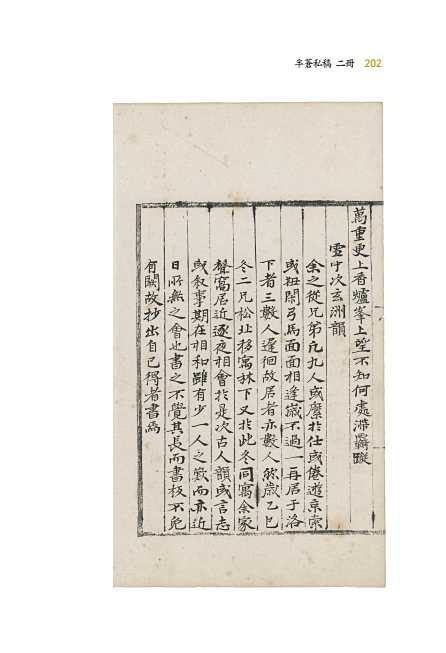 半蒼私稿 二冊 202
萬重更上香爐峯上望不知何處滞羈蹤
雪中次玄洲韻
余之從兄弟凡九人或縻於仕或倦遊京索
或狃閑弓馬面面相逢歲不過一再居于洛
下者三數人遲徊故居者亦數人然歲乙巳
冬二兄松北移寓林下又於此冬同寓余家
聲寓居近逐夜相會於是次古人韻或言志
或叙事期在相和雖有少一人之歎而亦近
日所無之會也書之不覺其長而書板不免
有闕故抄出自己得者書焉